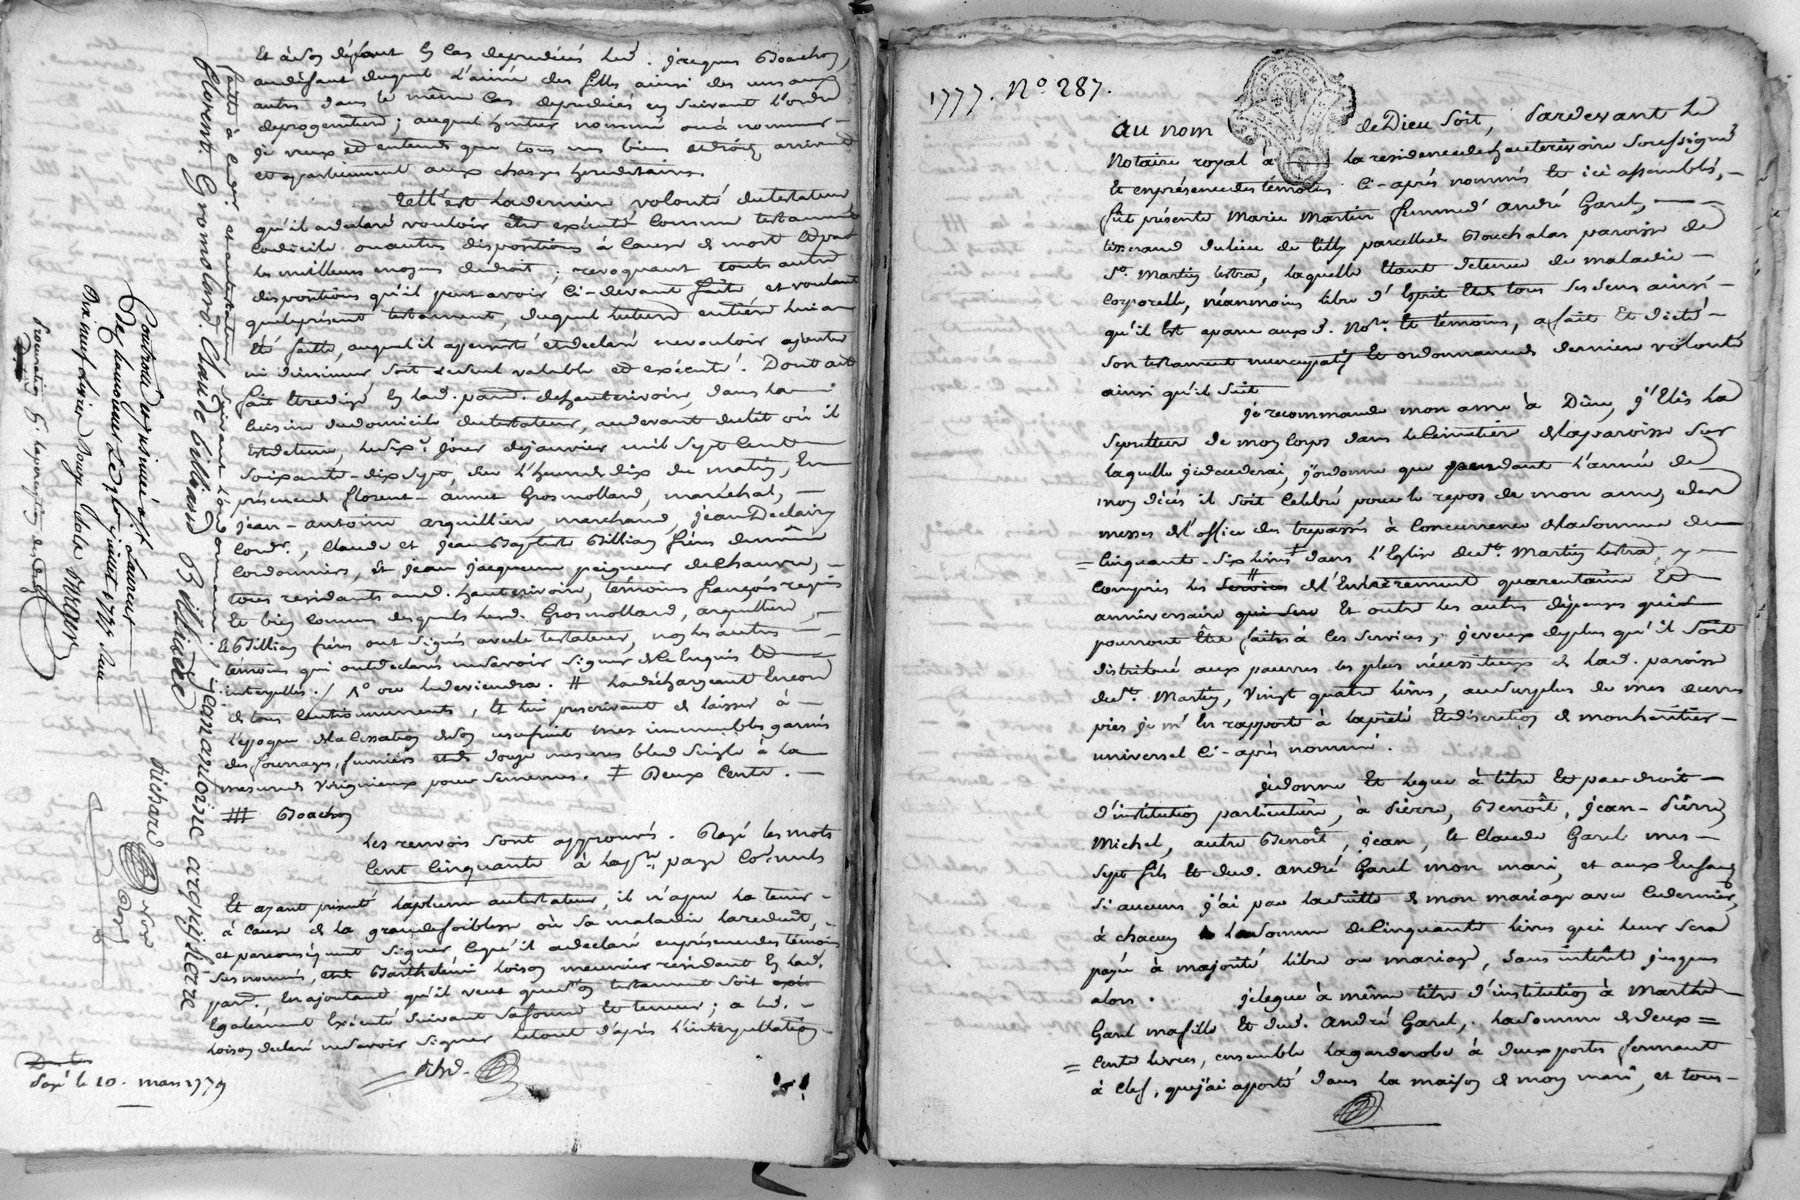 Et à son défaut & cas de prédécès led. jacques Boachon
au défaut duquel l'ainé des fils ainsi des uns aux
autres dans le même cas de prédécès en suivant l'ordre
de progeniture; auquel heritier nommé ou à nommer
je veux et entends que tous mes biens et droits arrivent
et apartiennent aux charges hereditaires.
Telle est la derniere volonté du testateur
qu'il a declaré vouloir être exécuté comme testament
codicile ou autres dispositions à cause de mort et par
les meilleurs moyens de droit; revoquant toutes autres
dispositions qu'il peut avoir ci-devant faite et voulant
que le présent testament, duquel lecture entière lui a
été faitte, auquel il a persisté et declaré ne vouloir ajouter
ni diminuer soit le seul valable et exécuté. Dont acte
fait et redigé en lad. par. de hauterivoire, dans la
cuisine du domicile du testateur, au devant du lit où il
est detenu, le six.e jour de janvier mil sept cent
soixante-dix sept, sur l'heure de dix du matin, En
présence de florent-annet Grosmollard, maréchal,
jean-antoine arquillière marchand, jean Declairy
cord.r, claude et jean Baptiste Billiay frères
cordonniers, et jean jacquemn peigneur de chanvre,
tous residants aud. hauterivoire, témoins françois requis
Et bien connus desquels lesd. Grosmollard, arquillière,
et Billiay frères ont signés avec le testateur, non les autres
témoins qui ont declarés ne savoir signer de ce enquis et
interpellés./. 1° ou le deviendra. # la déchargeant encore
de tous cautionnements, et lui prescrivant de laisser à
l'époque de la cessation de son usufruit mes immeubles garnis
des fourrages, fumiers et de douze mesures bled seigle à la
mesure de Virigneux pour semences. ≠ Deux cents.
⧻ Boachon
les renvois sont approuvés. Rayé les mots
cent cinquante à la p.re page co.e nuls
Et ayant présenté la plume au testateur, il n'a pu la tenir
à cause de la grande foiblesse où sa maladie la reduit,
et par conséquent signer ce qu'il a declaré en présence des témoins
sus nommés, et de Barthelémi loison meunier résidant en lad.
par. En ajoutant qu'il veut que son testament soit
également exécuté suivant sa forme et teneur; a led.
loison declaré ne savoir signer le tout d'après l'interpellation
Rich.d
Payé le 10. mars 1779
faitte à led. et au testateur suivant l'ordonnance
florent. Gromolard. Claude billiaud Billiade Jean antoine arquilliere
Controllé et insinué à St Laurent
de Chamousset le 27 juillet 1777 Reçu
dix neuf livres douze sols
Richard
1777. N.° 287.
au nom de Dieu soit, Pardevant le
Notaire royal à la residence de hauterivoire soussigné
Et en présence des témoins ci-après nommés et ici assemblés,
fut présente Marie Martin femme d'andré Garel,
tisserand du lieu de tilly parcelle de Bouchalas paroisse de
S.t Martin lestra, laquelle étant detenue de maladie
corporelle, néanmoins libre d'Esprit et de tous ses sens ainsi
qu'il est aparu aux d. No.re Et témoins, a fait Et dicté
son testament nuncupatif Et ordonnance de derniere volonté
ainsi qu'il suit
je recommande mon ame à Dieu, j'Elis la
sepulture de mon corps dans le cimetière de la paroisse sur
laquelle je decederai, j'ordonne que pendant l'année de
mon décés il soit celebré pour le repos de mon ame, des
messes de l'office des trepassés à concurrence de la somme de
cinquante-six livres dans l'Eglise de St. Martin lestra, y
compris les services de l'Enterrement quarentaine Et
anniversaire Et outre les autres dépenses qui
pourront être faites à ces services; je veux de plus qu'il soit
distribué aux pauvres les plus nécessiteux de lad. paroisse
de St. Martin, vingt quatre livres, au surplus de mes œuvres
pies je m'en rapporte à la piété et discretion de mon héritier
universel ci-après nommé.
je donne Et legue à titre Et par droit
d'institution particulière, à Pierre, Benoît, jean-Pierre,
Michel, autre Benoît, jean, et Claude Garel mes
sept fils Et dud. andré Garel mon mari, et aux Enfans
si aucuns j'ai par la suitte de mon mariage avec ce dernier,
à chacun la somme de cinquante livres qui leur sera
payée à majorité libre ou mariage, sans intérêt jusques
alors. je legue à même titre d'institution à Marthe
Garel ma fille Et dud. andré Garel, la somme de deux
cents livres, ensemble la garderobe à deux portes fermant
à clef, que j'ai aporté dans la maison de mon mari, et tous